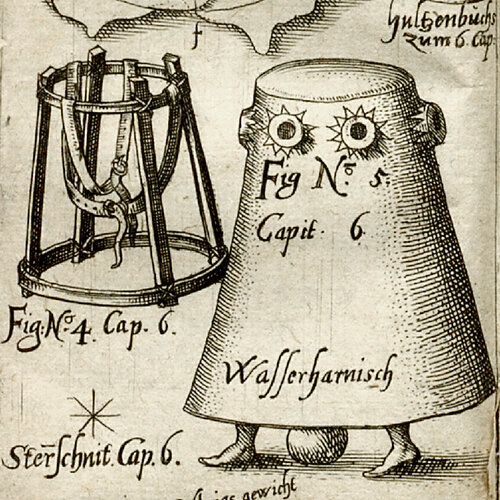 f
hultzenbuchs
zum 6. Cap
Fig Nº 5.
Capit. 6
Fig: Nº 4. Cap. 6.
Wasserharnisch
Ster̄schnit. Cap. 6.
gewicht